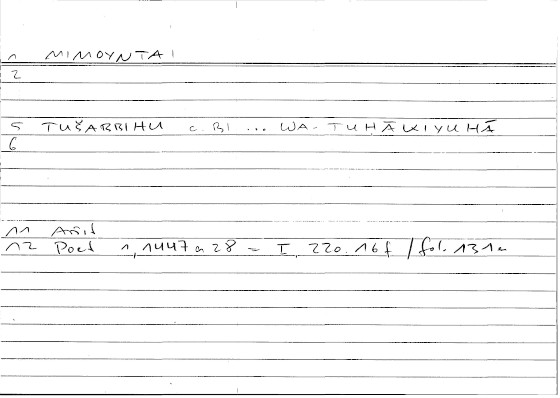 1 MIMOYNTAI
2
5 TUŠABBIHU c. BI ... WA-TUHĀKIYUHĀ
6
11 Arist
12 Poet 1,1447 a 28 = I, 220. 16f / fol. 131a